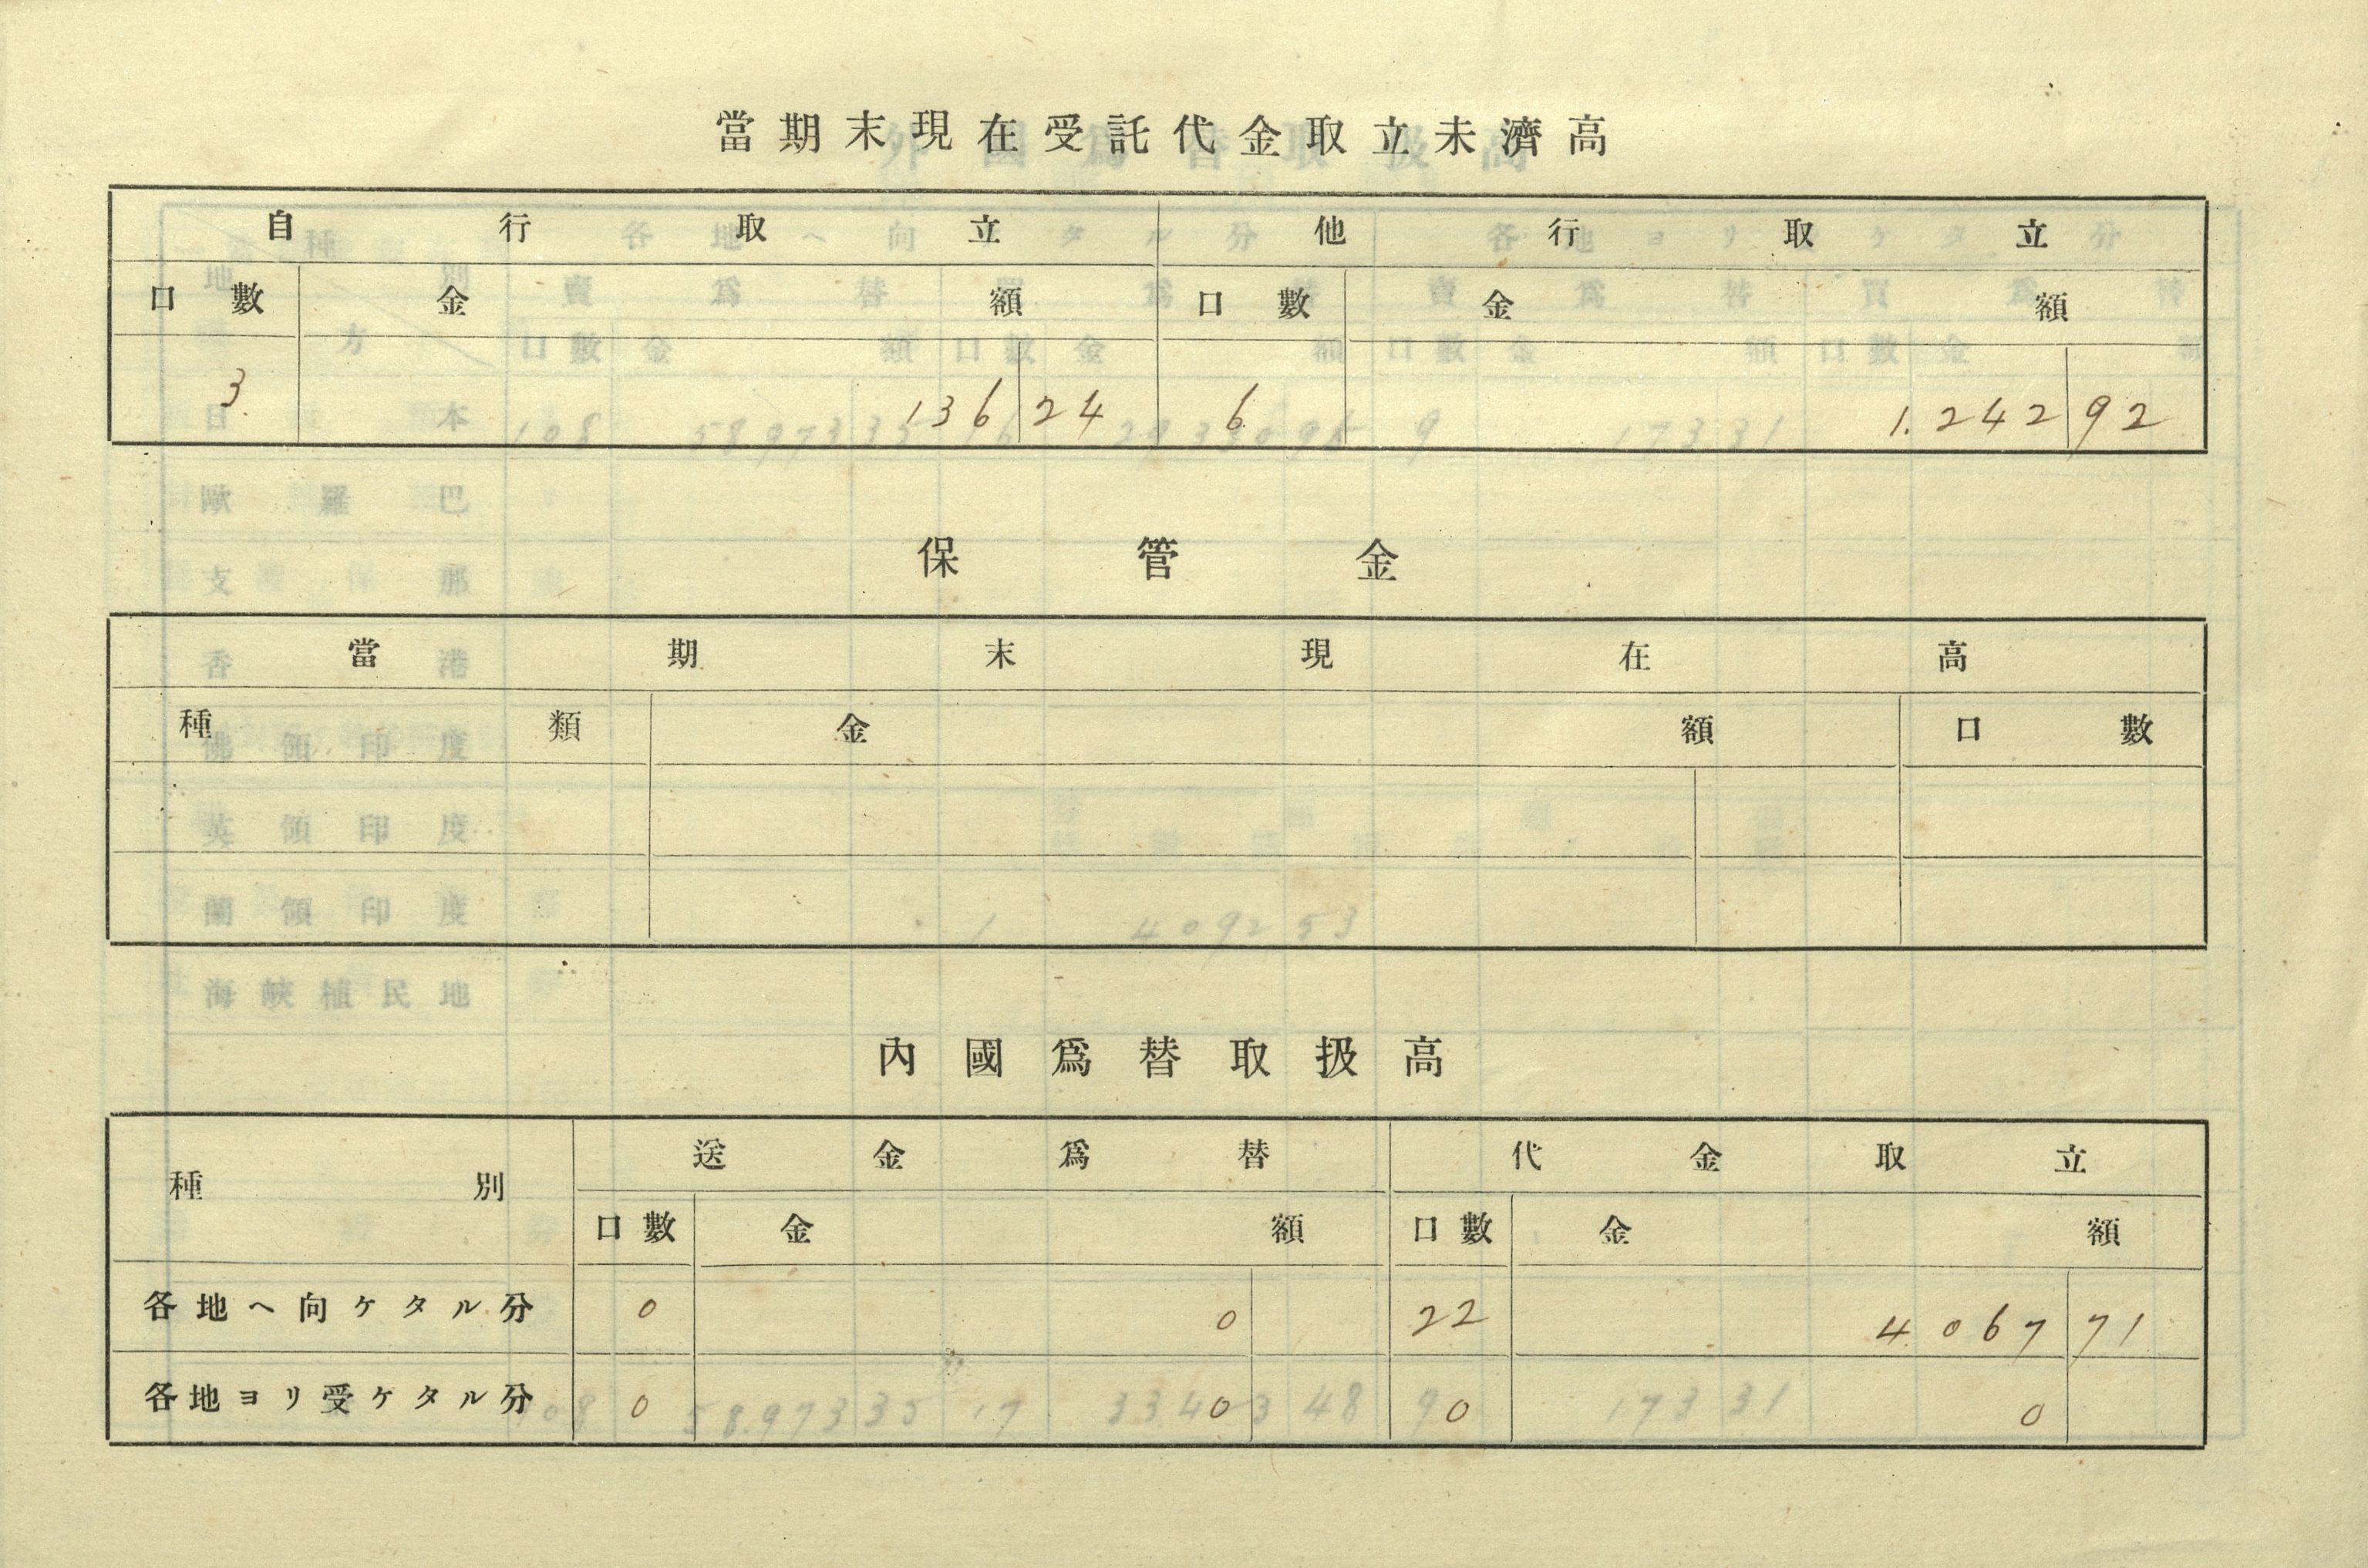 當期末現在受託代金取立未濟高
自行取立 他行取立
口數 金額 口數 金額
3 136 24 6 1.242 92
保管金
當期末現在高
種類 金額 口數
內國爲替取扱高
種別 送金爲替 代金取立
口數 金額 口數 金額
各地ヘ向ケタル分 0 0 22 4 067 71
各地ヨリ受ケタル分 0 0 0 0